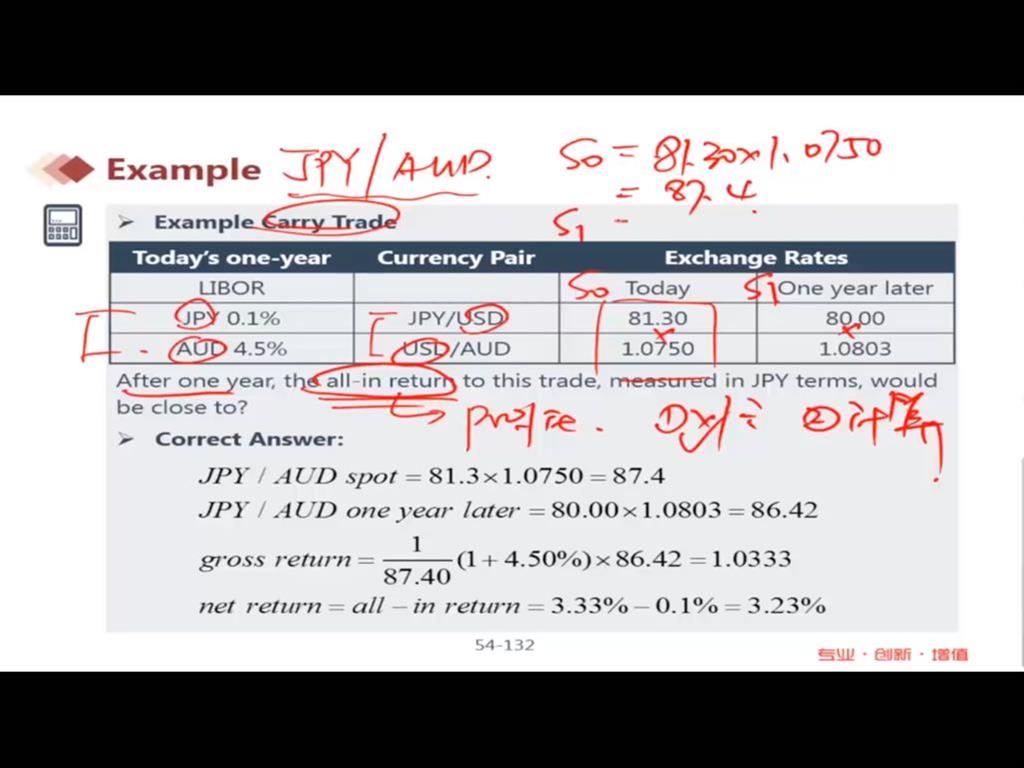 Example JPY/AUD.
S0 = 81.30×1.0750
= 87.4
➢ Example Carry Trade
S1 =
Today's one-year Currency Pair Exchange Rates
LIBOR S0 Today S1 One year later
JPY 0.1% JPY/USD 81.30 80.00
AUD 4.5% USD/AUD 1.0750 1.0803
After one year, the all-in return to this trade, measured in JPY terms, would
be close to?
➢ Correct Answer:
JPY / AUD spot = 81.3×1.0750 = 87.4
JPY / AUD one year later = 80.00×1.0803 = 86.42
gross return = 1/87.40 (1+4.50%)×86.42 = 1.0333
net return = all − in return = 3.33% − 0.1% = 3.23%
54-132
专业 · 创新 · 增值